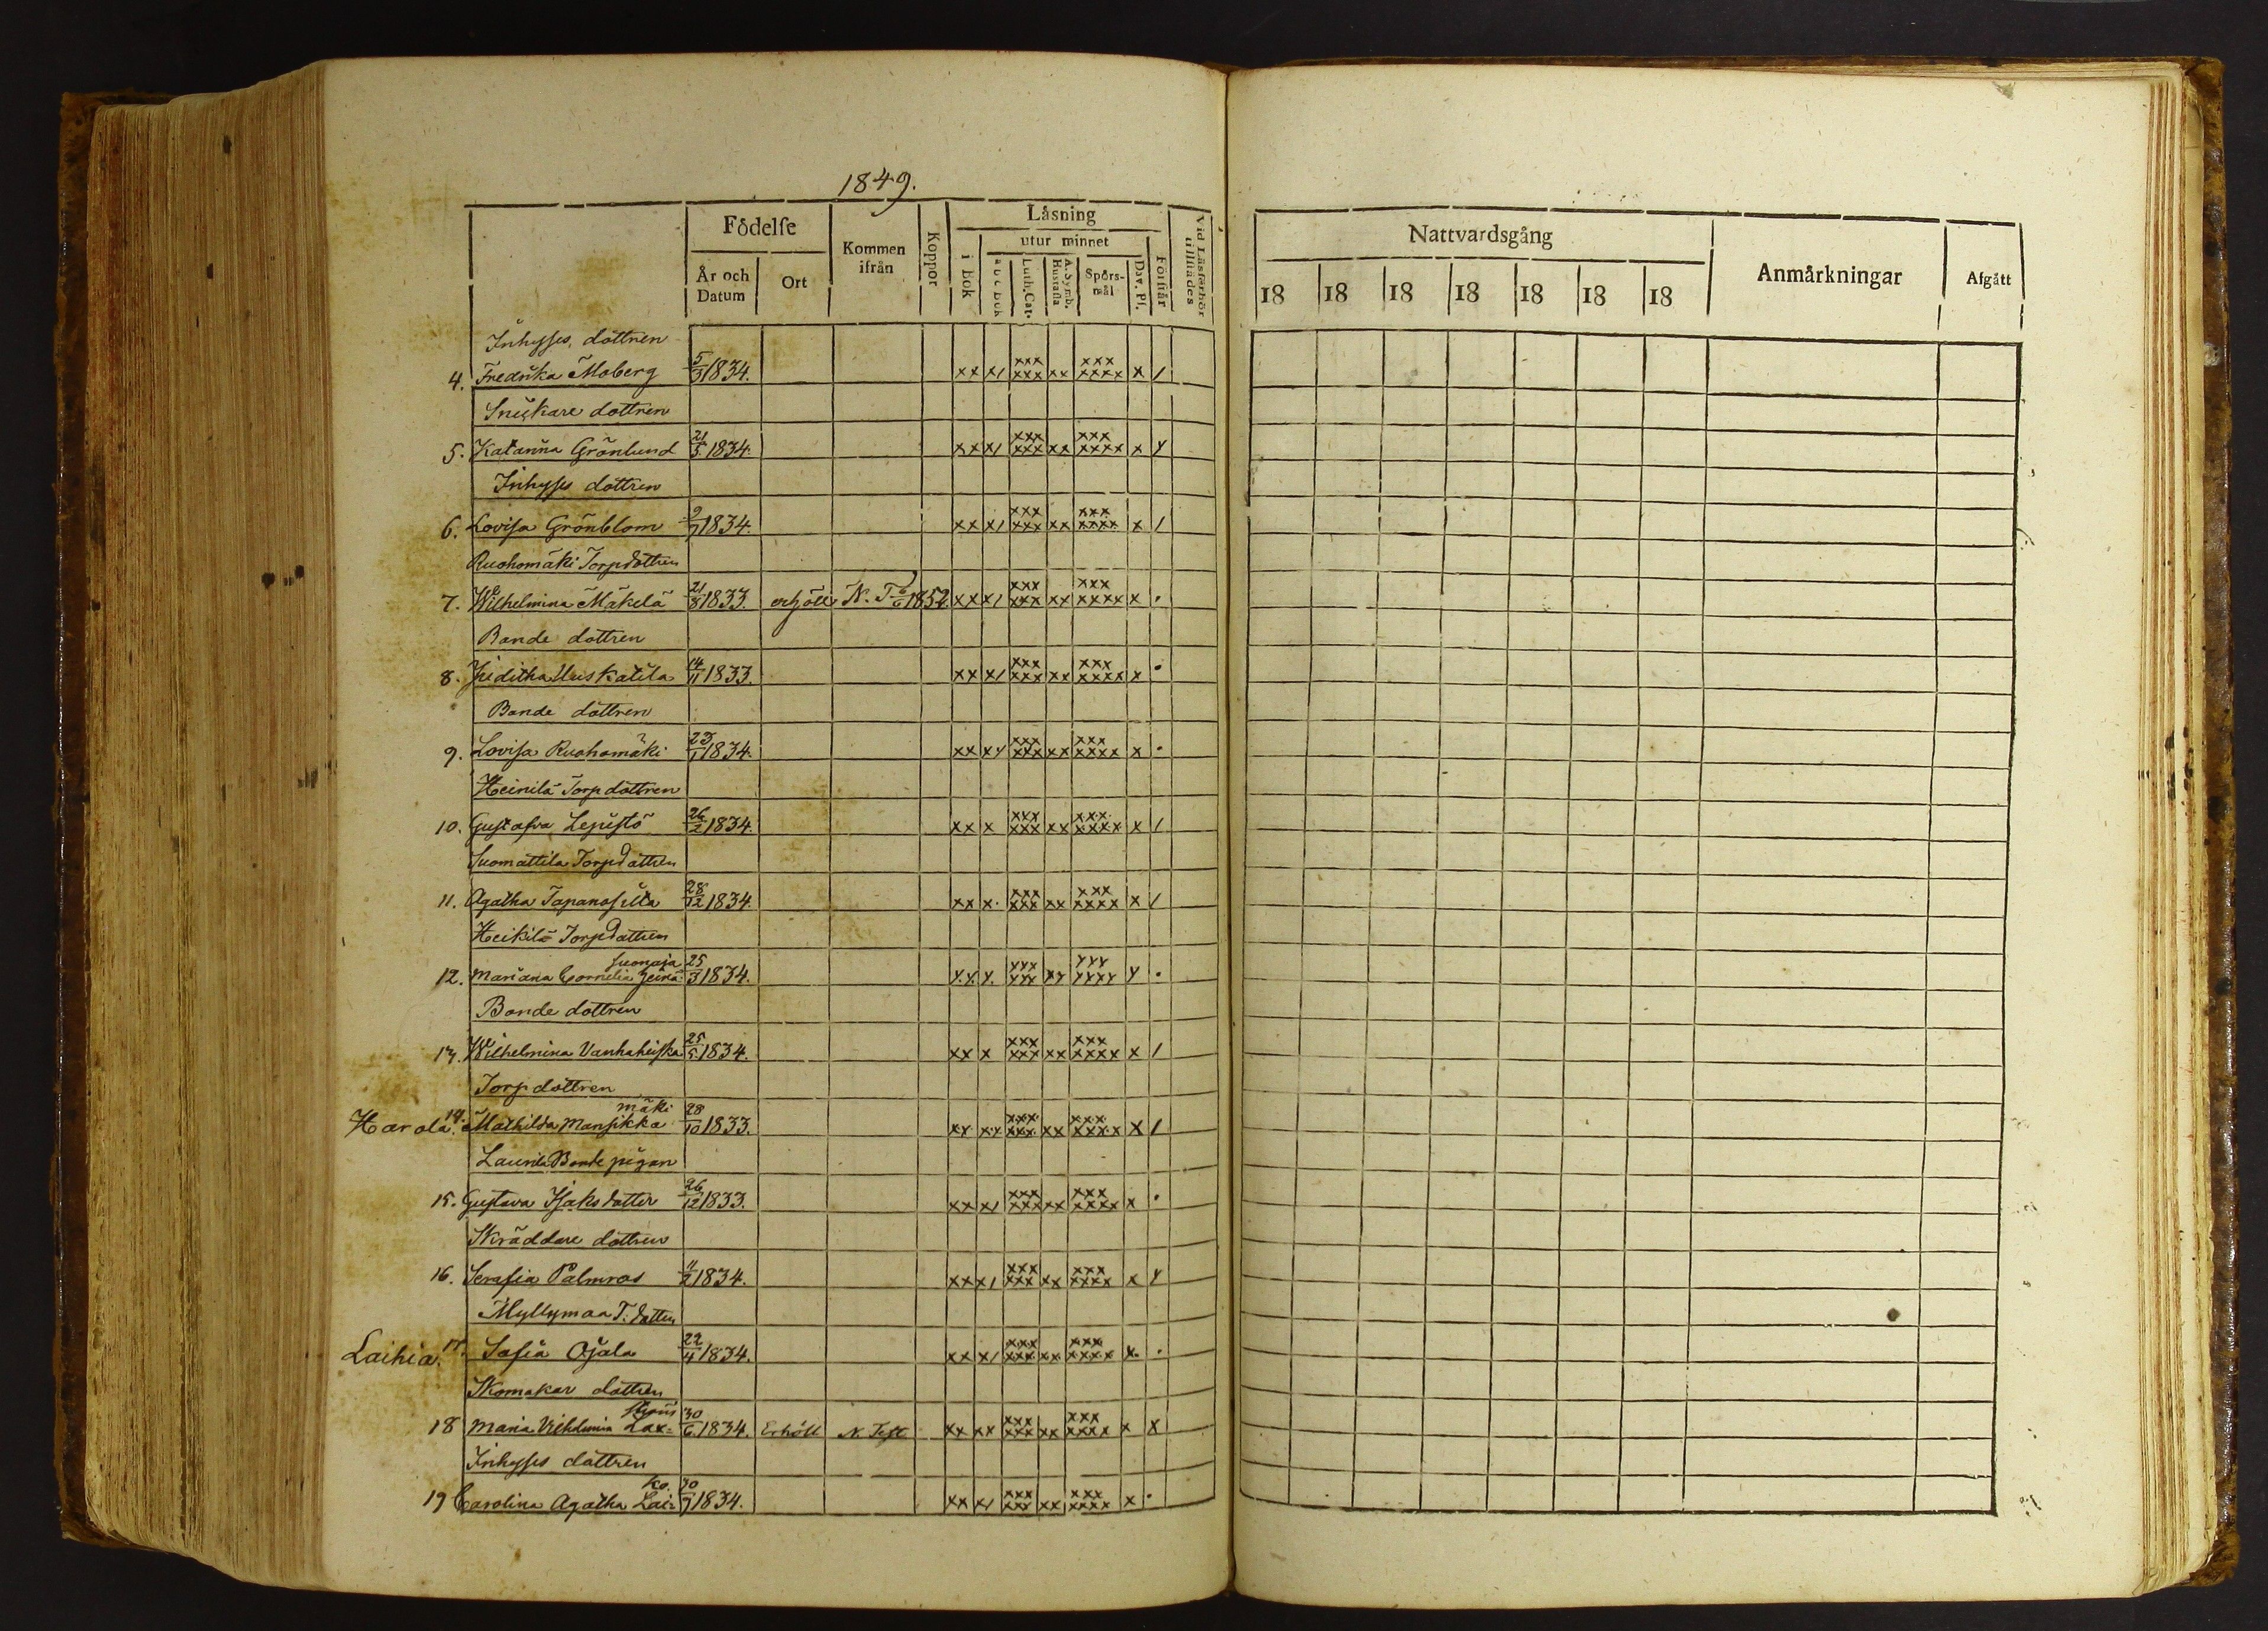 1849.
Födelse
Kommen ifrån
Koppor
Läsning
Vid Läsförhör tillstädes
År och Datum
Ort
i Bok
utur minnet
a b c bok
Luth. Cat.
A. Symb. Hustafla
Spörsmål
Dav. Ps.
Förstår
Inhyses dottren
4. Fredrika Moberg 5/3 1834. xx x/ xxx xxx xx xxx xxxx x /
Snickare dottren
5. Katarina Grönlund 21/5 1834. xx x/ xxx xxx xx xxx xxxx x y
Inhyses dottren
6. Lovisa Grönblom 9/7 1834. xx x/ xxx xxx xx xxx xxxx x /
Ruohomäki Torpdottren
7. Wilhelmina Mäkelä 21/8 1833. erhöll N. T. 1852 xx x/ xxx xxx xx xxx xxxx x .
Bonde dottren
8. Juditha Uuskatila 14/11 1833. xx x/ xxx xxx xx xxx xxxx x .
Bonde dottren
9. Lovisa Ruohomäki 23/1 1834. xx xy xxx xxx xx xxx xxxx x .
Heinilä Torpdottren
10. Gustafva Lepistö 26/2 1834. xx x xxx xxx xx xxx xxxx x /
Suomattila Torpdottren
11. Agatha Tapanosilta 28/12 1834. xx x. xxx xxx xx xxx xxxx x /
Heikilä Torpdottren
12. Mariana Cornelia suonaja 25/3 1834. yy y. yyy yyy xy yyy yyyy y .
Bonde dottren
13. Wilhelmina Vanhaheiska 25/5 1834. xx x xxx xxx xx xxx xxxx x /
Torpdottren
Harola. 14. Mathilda Mansikka mäki 28/10 1833. xx xy xxx xxx xx xxx xxxx x /
Laurila Bonde pigan
15. Gustava Isaks dotter 26/12 1833. xx x/ xxx xxx xx xxx xxxx x .
Skräddare dottren
16. Serafia Palmros 11/2 1834. xx x/ xxx xxx xx xxx xxxx x y
Myllymaa T. dottren
Laihia. 17. Sofia Ojala 22/4 1834. xx x/ xxx xxx xx xxx xxxx x .
Skomakar dottren
18 Maria Vilhelmina Lax= 30/6 1834. Erhöll N. Test. xx xx xxx xxx xx xxx xxxx x x
Inhyses dottren
19 Carolina Agatha Lai= ko. 30/9 1834. xx x/ xxx xxx xx xxx xxxx x .
Nattvardsgång
Anmärkningar
Afgått
18 18 18 18 18 18 18